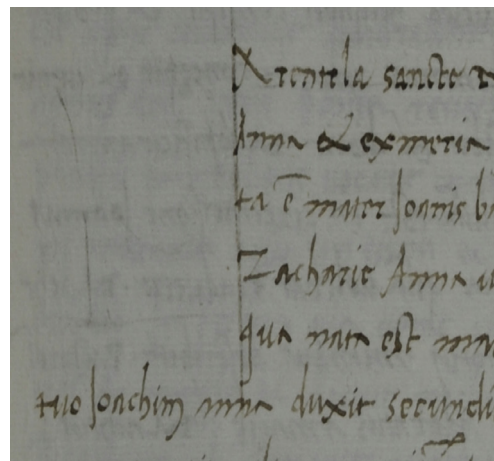 Arentela sancte
Anna & exmeria
ta ē mater Joanis
Zacharie Anna
qua nata est
tuo Joachim anna duxit secundū